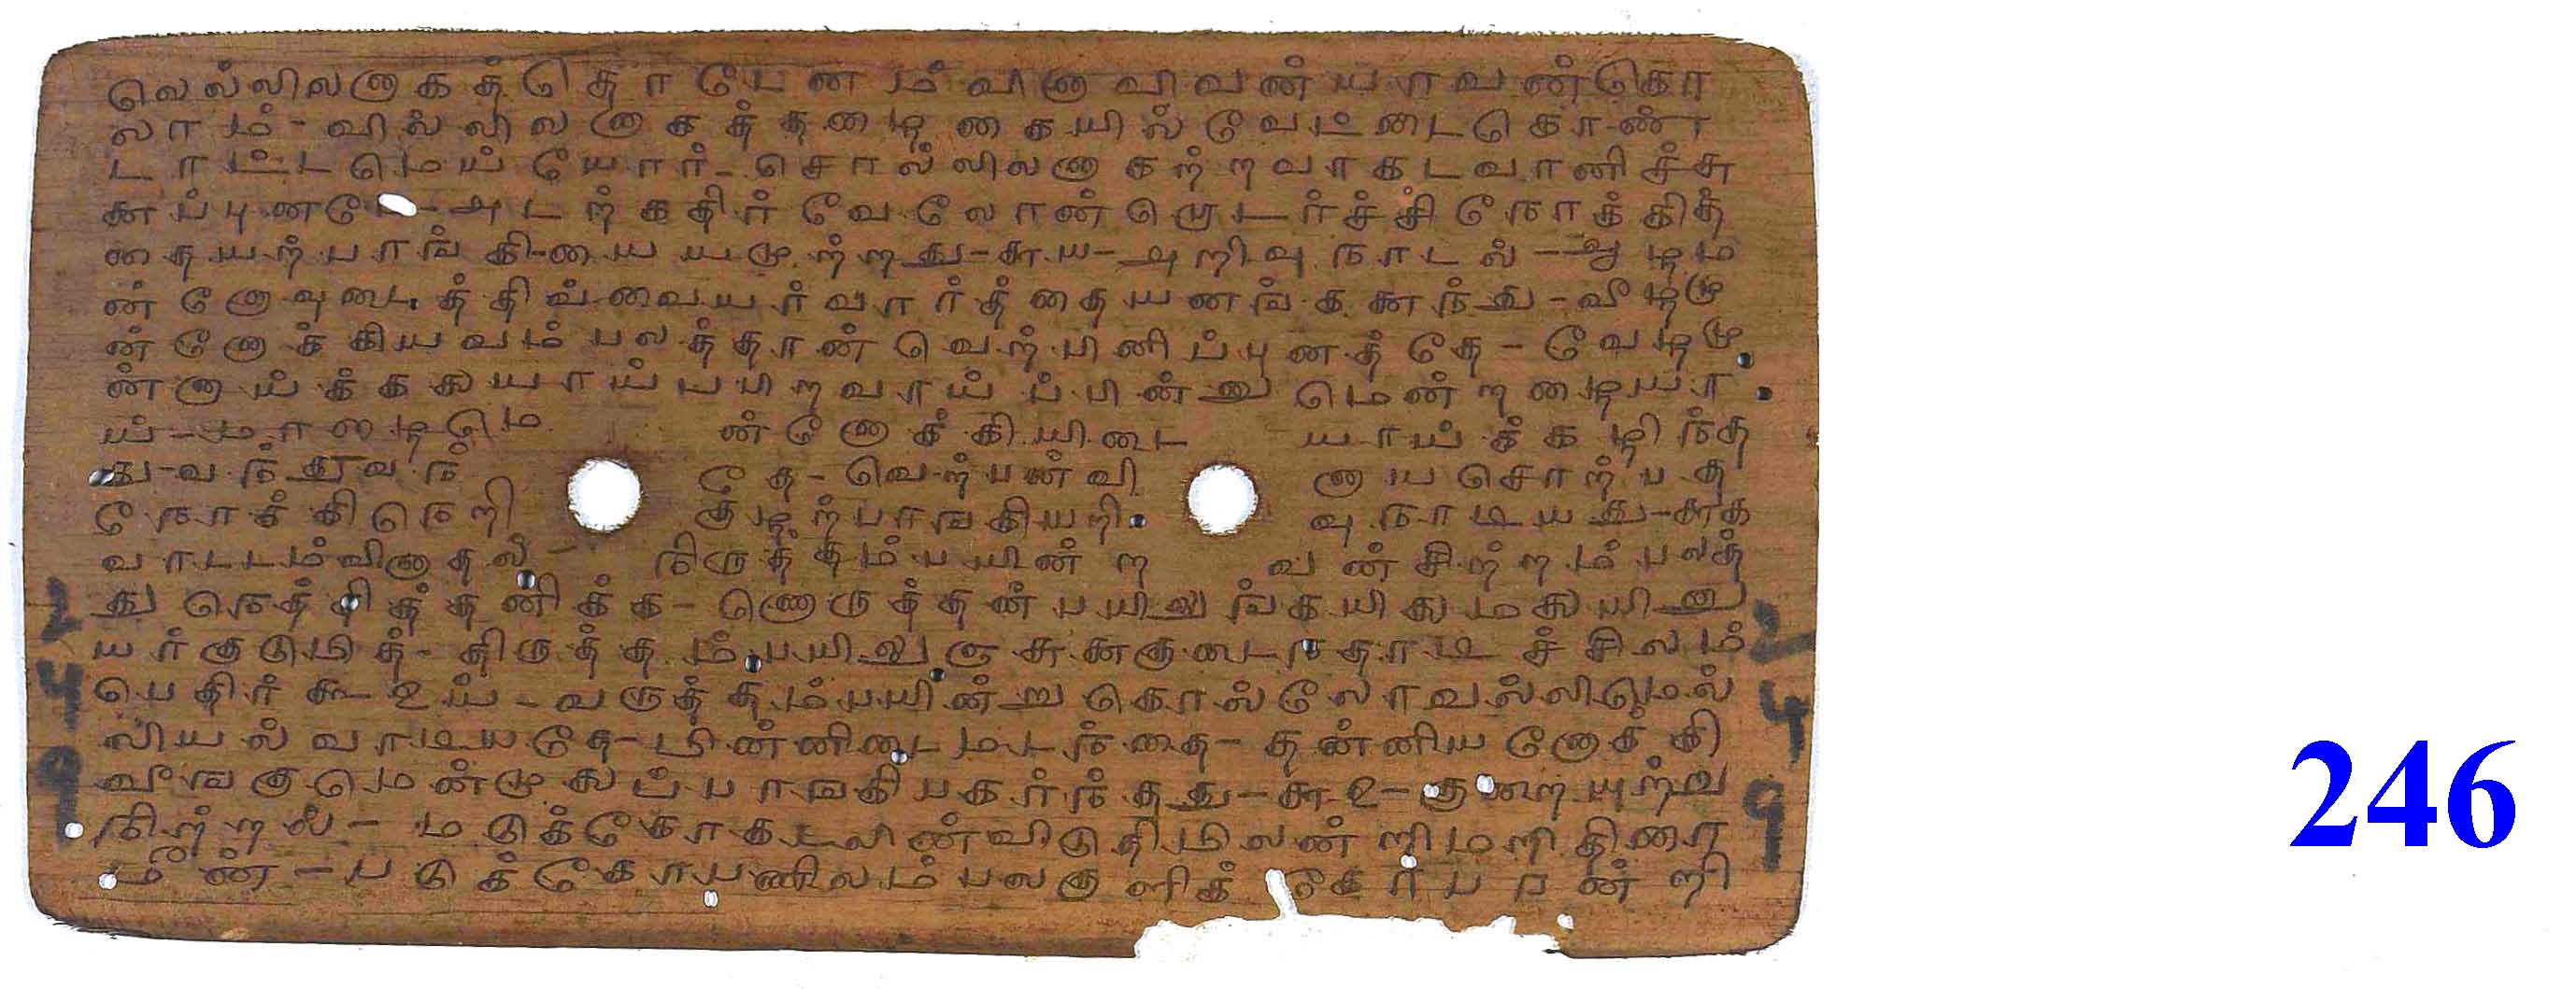 லெல்லிலனாகத்தொயேனம்வினாவிவண்யாவண்கொ
லாம்-வில்லிலனாகத்தழைகையில்வேட்டைகொண்
டாட்டமெய்யோர்-சொல்லிலனாகற்றவாகடவானிச்சு
னைப்புனமே-அடற்கதிர்வேலோன்றொடர்ச்சிநோக்கித்
தையற்பாங்கி-யையமுற்றது-சுய-அறிவுநாடல்-ஆழம
ன்னோவுடைத்திவ்வையர்வார்த்தையனங்கனைந்து-வீழமு
ன்னோக்கியவம்பலத்தான்வெற்பினிப்புனத்தே-வேழமு
ன்னாய்க்கலையாய்ப்பிறவாய்ப்பின்னுமென்றழையா
ய்-மாழைமெ ன்னோக்கியிடை யாய்க்கழிந்த
து-வந்துவந் தே-வெற்பன்வி னாயசொற்பத
நோக்கிநெறி குழற்பாங்கியறி வுநாடியது-சுக
வாட்டம்வினாதல்- நிருத்தம்பயின்ற வன்சிற்றம்பலத்
துநெத்தித்தனிக்க-ணொருத்தன்பயிலுங்கயிலைமலையினு
யர்குடுமித்-திருத்தம்பயிலுஞ்சுனைகுடைந்தாடிச்சிலம்
பெதிர்கூஉய்-வருத்தம்பயின்றுகொல்லோவல்லிமெல்
லியல்வாடியதே-மின்னிடைமடந்தை-தன்னியனோக்கி
வீங்குமென்முலைப்பாங்கிபகர்ந்தது-சு2-குறையுற்று
நிற்றல்-மடுக்கோகடலின்விடுதிமிலன்றிமறிதிரை
மீன்-படுக்கோபணிலம்பலகுளிக்கோபரன்றி
2
4
9
2
4
9
246